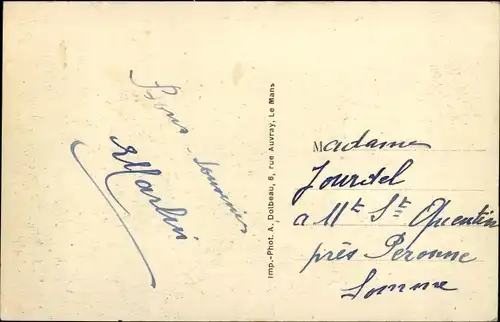 Bons souvenirs
EMartin
Imp.-Phot. A. Dolbeau, 6, rue Auvray, Le Mans
Madame
Jourdel
à Mt St Quentin
près Peronne
Somme